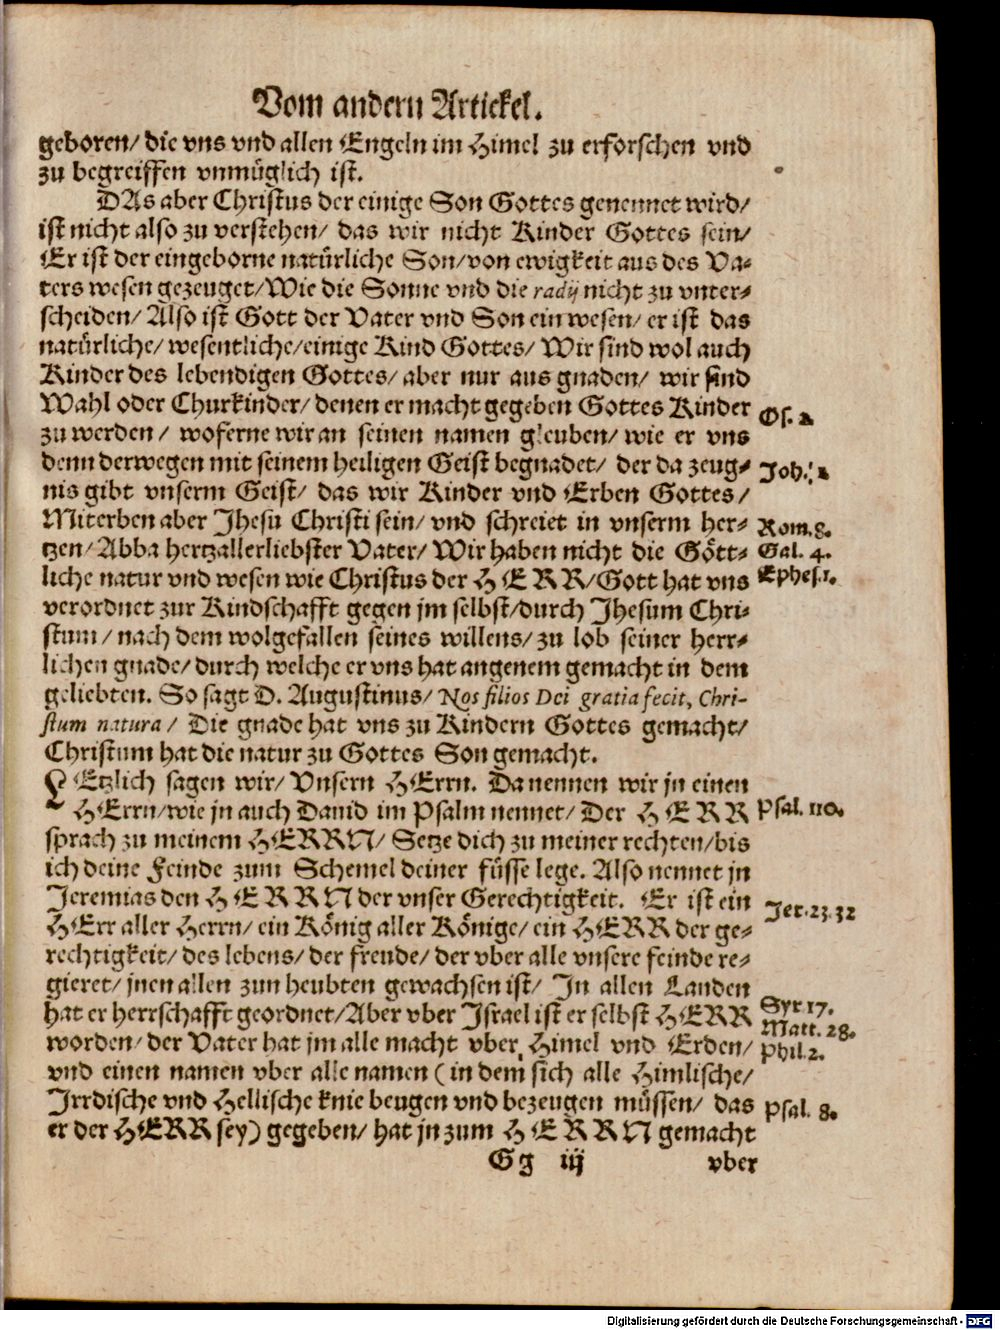 Vom andern Artickel.
geboren/ die vns vnd allen Engeln im Himel zu erforschen vnd
zu begreiffen vnmüglich ist.
DAs aber Christus der einige Son Gottes genennet wird/
ist nicht also zu verstehen/ das wir nicht Kinder Gottes sein/
Er ist der eingeborne natürliche Son/von ewigkeit aus des Va-
ters wesen gezeuget/Wie die Sonne vnd die radij nicht zu vnter-
scheiden/ Also ist Gott der Vater vnd Son ein wesen/ er ist das
natürliche/ wesentliche/einige Kind Gottes/ Wir sind wol auch
Kinder des lebendigen Gottes/ aber nur aus gnaden/ wir sind
Wahl oder Churkinder/ denen er macht gegeben Gottes Kinder
Os. 2.
zu werden/ woferne wir an seinen namen gleuben/ wie er vns
denn derwegen mit seinem heiligen Geist begnadet/ der da zeug-
Joh. 1
nis gibt vnserm Geist/ das wir Kinder vnd Erben Gottes/
Miterben aber Jhesu Christi sein/ vnd schreiet in vnserm her-
Rom. 8.
tzen/ Abba hertzallerliebster Vater/ Wir haben nicht die Gött-
Gal. 4.
liche natur vnd wesen wie Christus der HERR/Gott hat vns
Ephes. 1.
verordnet zur Kindschafft gegen jm selbst/durch Jhesum Chri-
stum/ nach dem wolgefallen seines willens/ zu lob seiner herr-
lichen gnade/ durch welche er vns hat angenem gemacht in dem
geliebten. So sagt D. Augustinus/ Nos filios Dei gratia fecit, Chri-
stum natura/ Die gnade hat vns zu Kindern Gottes gemacht/
Christum hat die natur zu Gottes Son gemacht.
LEtzlich sagen wir/ Vnsern HErrn. Da nennen wir jn einen
HErrn/wie jn auch Dauid im Psalm nennet/ Der HERR
Psal. 110.
sprach zu meinem HERRN/ Setze dich zu meiner rechten/bis
ich deine Feinde zum Schemel deiner füsse lege. Also nennet jn
Jeremias den HERRN der vnser Gerechtigkeit. Er ist ein
Jer. 23. 32
HErr aller Herrn/ ein König aller Könige/ ein HERR der ge-
rechtigkeit/ des lebens/ der freude/ der vber alle vnsere feinde re-
gieret/ jnen allen zun heubten gewachsen ist/ In allen Landen
hat er herrschafft geordnet/Aber vber Israel ist er selbst HERR
Syr. 17.
Matt. 28.
worden/ der Vater hat jm alle macht vber Himel vnd Erden/
Phil. 2.
vnd einen namen vber alle namen (in dem sich alle Himlische/
Irrdische vnd Hellische knie beugen vnd bezeugen müssen/ das
Psal. 8.
er der HERR sey) gegeben/ hat jn zum HERRN gemacht
Gg iij
vber
Digitalisierung gefördert durch die Deutsche Forschungsgemeinschaft - DFG